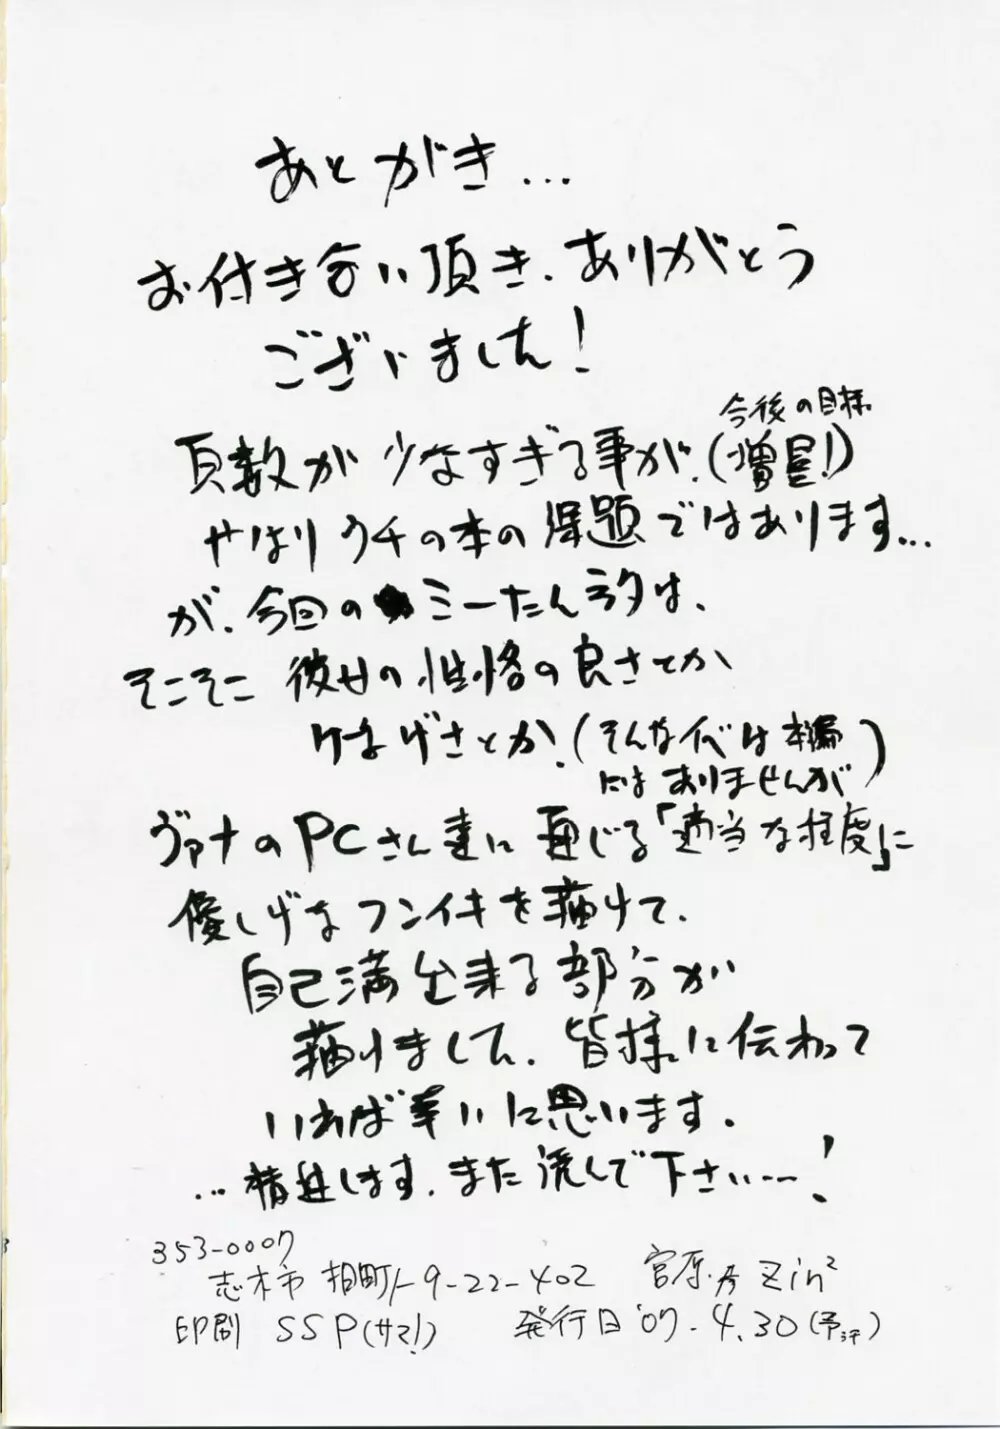 あとがき…
お付き合い頂き、ありがとう
ございました!
今後の目標
頁数が少なすぎる事が、(増量!)
やはりウチの本の課題ではあります…
が、今回のミーたんネタは、
そこそこ彼女の性格の良さとか
けなげさとか、(そんなイベは本編
にはありませんが)
ヴァナのPCさん達に通じる「適当な程度」に
優しげなフンイキを描けて、
自己満出来る部分が
描けました、皆様に伝わって
いれば幸いに思います。
…精進します、また読んで下さい……!
353-0007
志木市 柏町1-9-22-402 宮原 Zin²
印刷 SSP(サマ!) 発行日'07.4.30(予定)